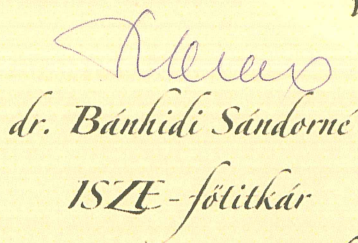 dr. Bánhidi Sándorné
ISZE-főtitkár